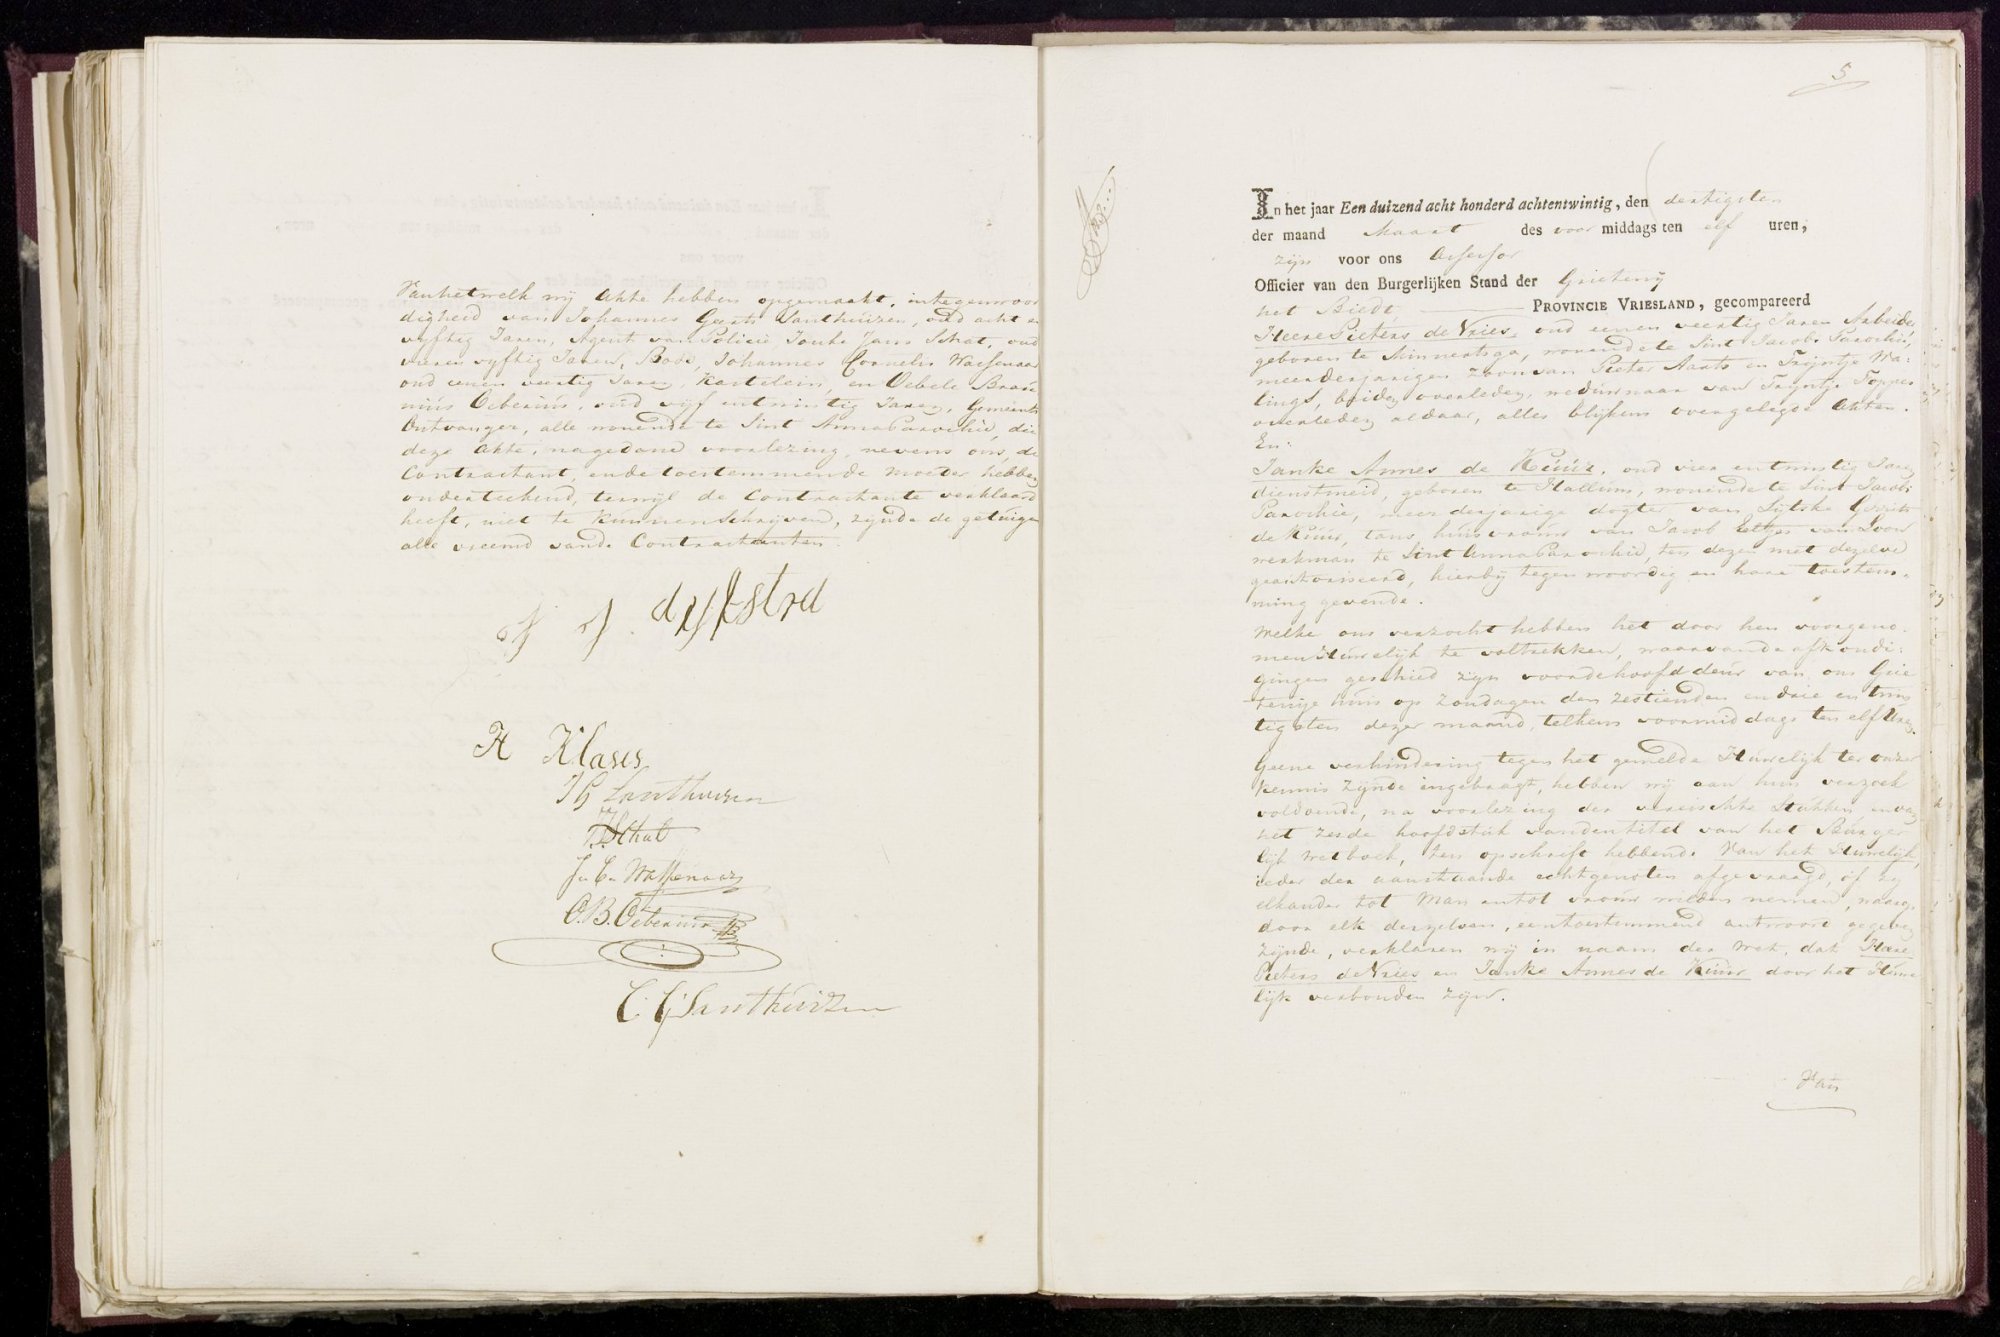 Van hetwelk wij Akte hebben opgemaakt, in tegenwoor
digheid van Johannes Gerrits Santhuizen, oud acht en
vyftig Jaren, Agent van Policie, Jouke Jans Schat, oud
vier en vyftig Jaren, Bode, Johannes Cornelis Wassenaar
oud eenen veertig Jaren, Kastelein, en Oebele Brou
nius Oeberius, oud vijf entwintig Jaren, Gemeente
Ontvanger, alle wonende te Sint AnnaParochie, die
deze Akte, nagedane voorlezing, nevens ons, de
Contractant, ende toestemmende moeder hebben
onderteekend, terwijl de Contractante verklaard
heeft, niet te kunnen Schrijven, zijnde de getuigen
alle vreemd vande Contractanten.
J J dijkstra
H Klases
J G Santhuizen
J.J. Schat
J. C. Wassenaar
O. B. Oeberius
C. G. Santhuizen
5
In het jaar Een duizend acht honderd achtentwintig, den dertigsten
der maand Maart des voor middags ten elf uren,
zijn voor ons Assessor
Officier van den Burgerlijken Stand der Grietenij
het Bildt, PROVINCIE VRIESLAND, gecompareerd
Heere Pieters de Vries, oud eenen veertig Jaren Arbeider,
geboren te Minnertsga, wonende te Sint Jacobi Parochie,
meerderjarigen zoon van Pieter Aarts en Trijntje Wa:
lings, beiden overleden, weduwnaar van Trijntje Foppes
overleden aldaar, alles blijkens overgelegde Akten.
En:
Janke Annes de Kuur, oud vier entwintig Jaren
dienstmeid, geboren te Hallum, wonende te Sint Jacobi
Parochie, meerderjarige dogter van Sytske Gerrits
de Kuur, tans huisvrouw van Jacob van Loon
werkman te Sint AnnaParochie, ten dezen met dezelve
geautoriseerd, hierbij tegenwoordig en hare toestem-
ming gevende.
Welke ons verzocht hebben het door hen voorgeno-
men Huwelijk te voltrekken, waarvan de afkondi:
gingen geschied zijn voor de hoofddeur van ons Grie
tenije huis op Zondagen den zestienden en drie en twin
tigsten dezer maand, telkens voormiddags ten elf Uren.
Geene verhindering tegen het gemelde Huwelijk ter onzer
kennis zijnde ingebragt, hebben wij aan hun verzoek
voldoende, na voorlezing der vereischte Stukken en van
het zesde hoofdstuk van den titel van het Burger
lijk Wetboek, ten opschrift hebbende Van het Huwelijk,
ieder der aanstaande echtgenoten afgevraagd, of zij
elkander tot Man en tot vrouw wilden nemen, waarop
door elk derzelven, een toestemmend antwoord gegeven
zijnde, verklaren wij in naam der Wet, dat Heere
Pieters de Vries en Janke Annes de Kuur door het Huwe
lijk verbonden zijn.
Van